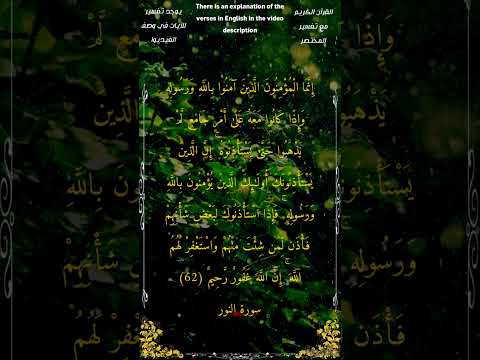 There is an explanation of the
verses in English in the video
description
القرآن الكريم
مع تفسير
المختصر
يوجد تفسير
للآيات في وصف
الفيديو
إِنَّمَا الْمُؤْمِنُونَ الَّذِينَ آمَنُوا بِاللَّهِ وَرَسُولِهِ
وَإِذَا كَانُوا مَعَهُ عَلَىٰ أَمْرٍ جَامِعٍ لَّمْ
يَذْهَبُوا حَتَّىٰ يَسْتَأْذِنُوهُ ۚ إِنَّ الَّذِينَ
يَسْتَأْذِنُونَكَ أُولَٰئِكَ الَّذِينَ يُؤْمِنُونَ بِاللَّهِ
وَرَسُولِهِ ۚ فَإِذَا اسْتَأْذَنُوكَ لِبَعْضِ شَأْنِهِمْ
فَأْذَن لِّمَن شِئْتَ مِنْهُمْ وَاسْتَغْفِرْ لَهُمُ
اللَّهَ ۚ إِنَّ اللَّهَ غَفُورٌ رَّحِيمٌ (62)
سورة النور